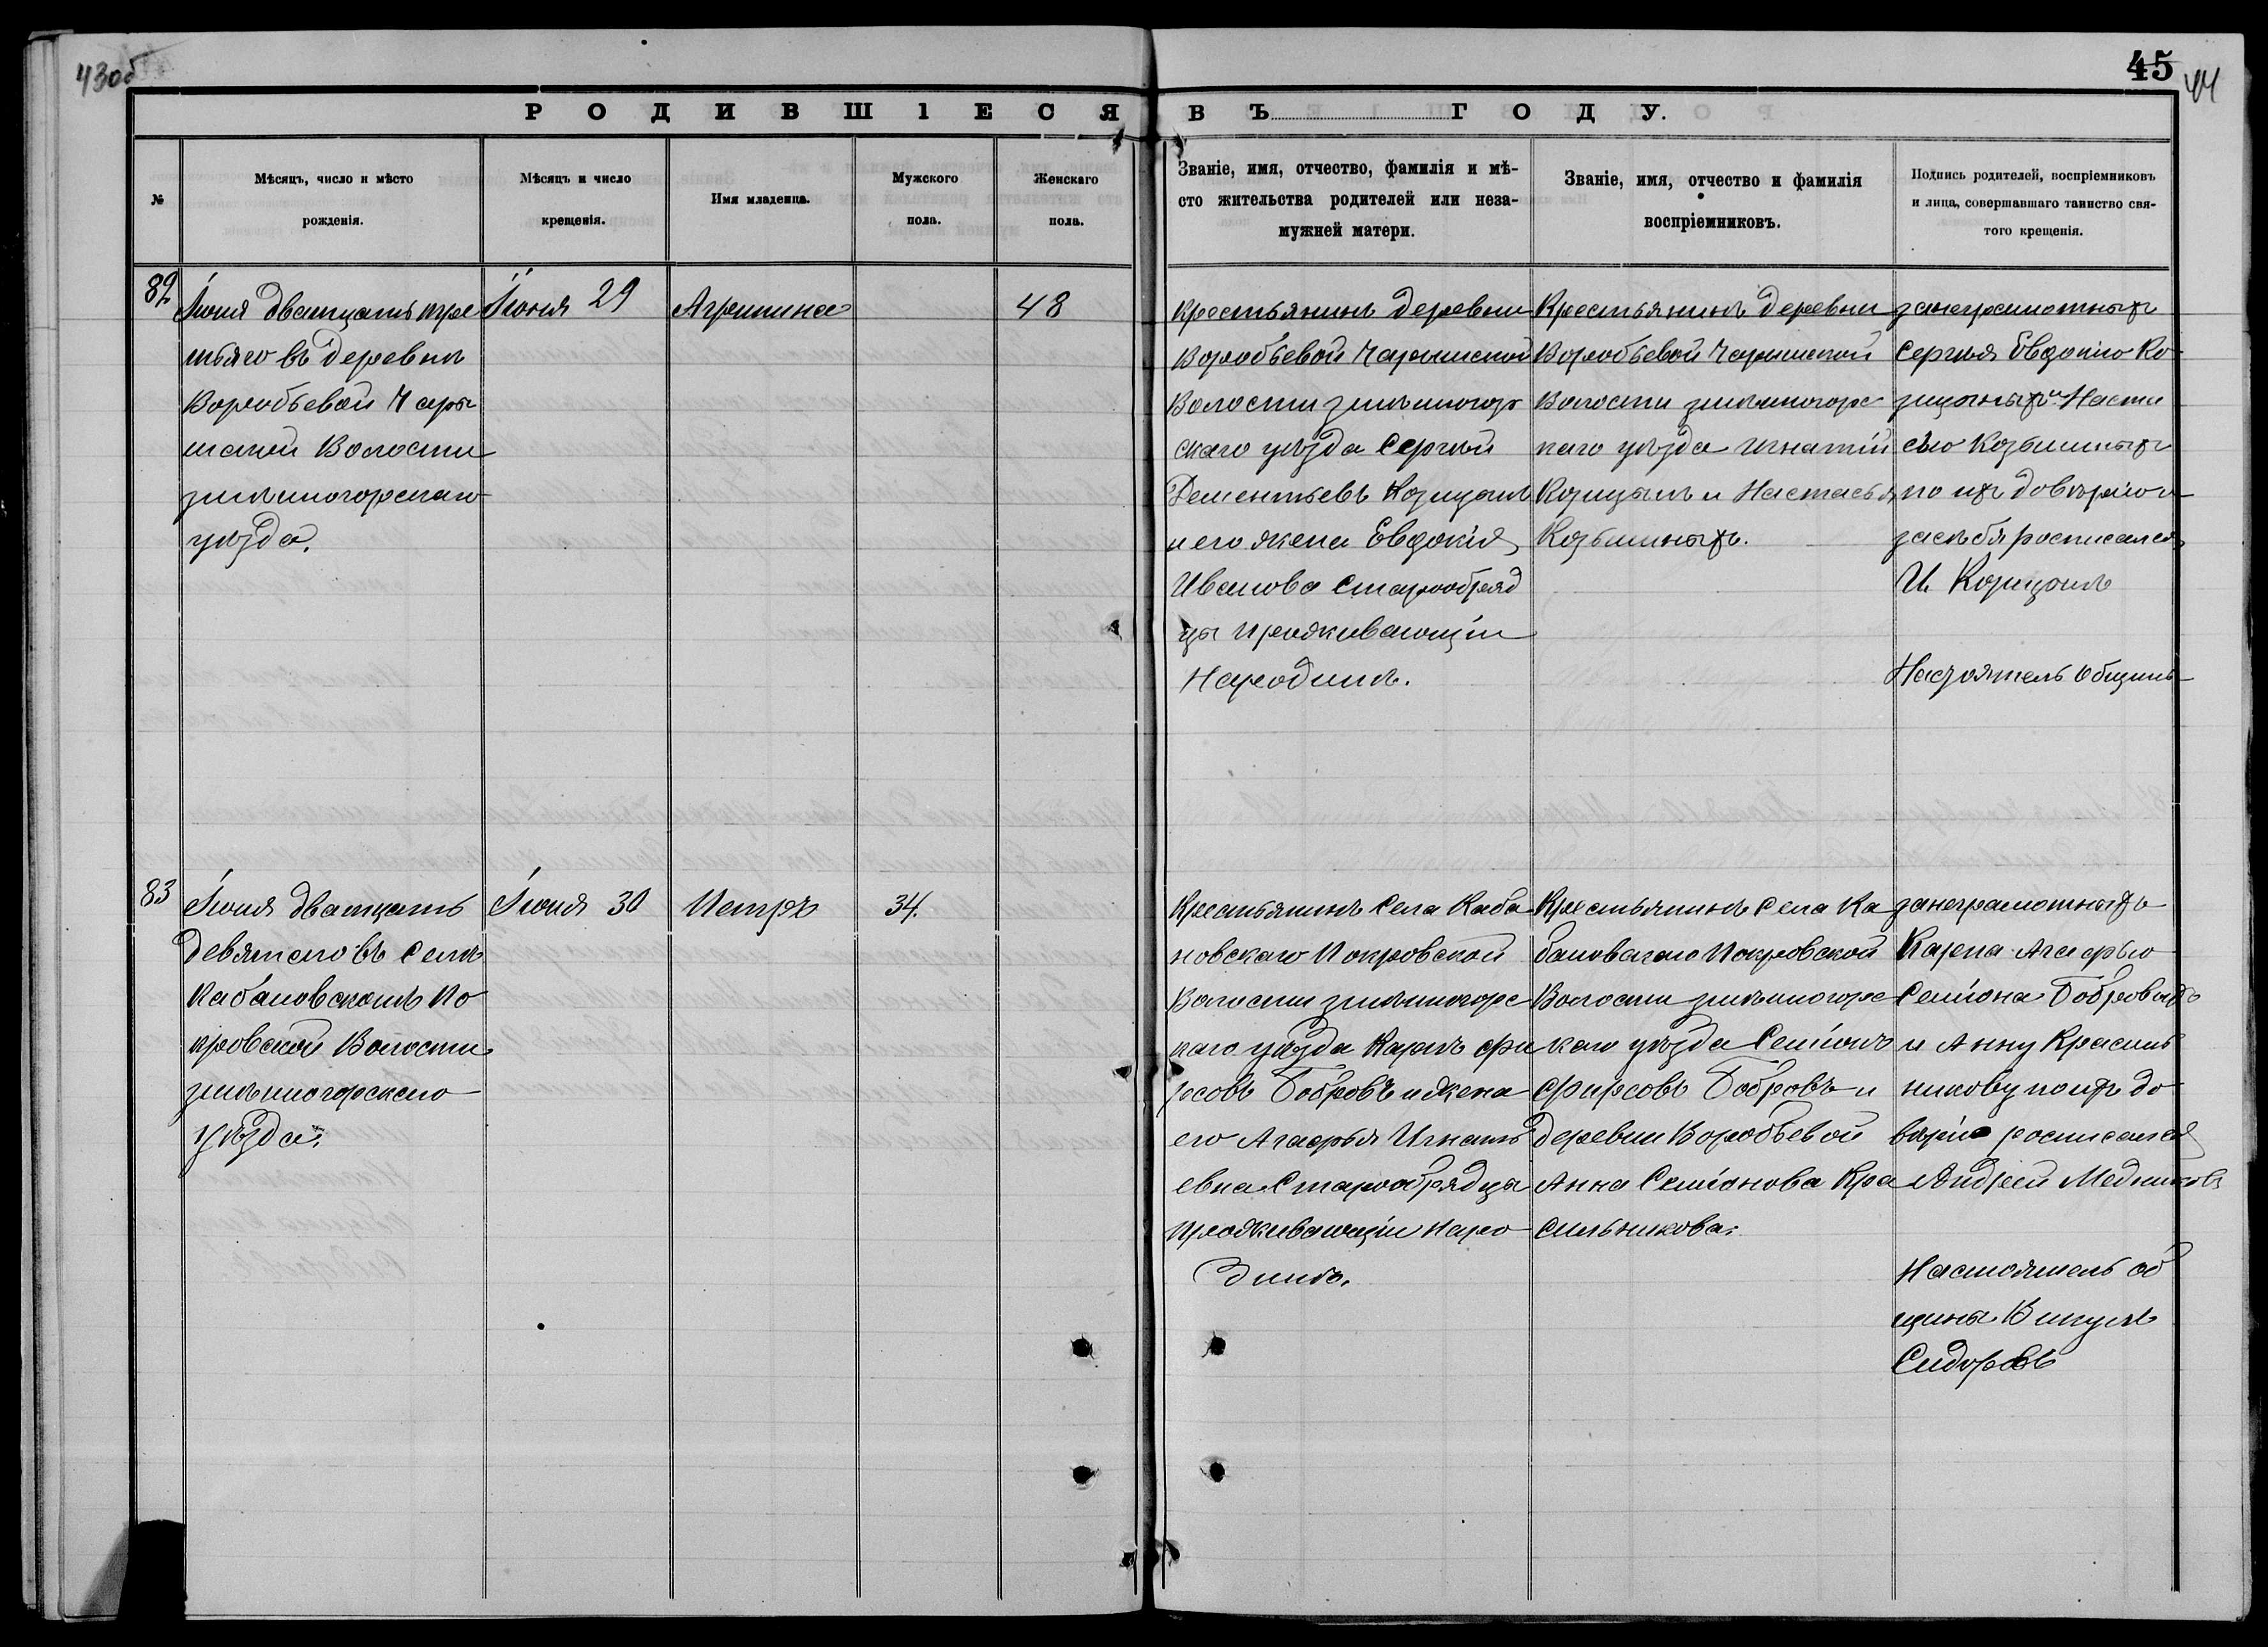 43об
45
44
РОДИВШІЕСЯ ВЪ ГОДУ.
№
Мѣсяцъ, число и мѣсто
рожденія.
Мѣсяцъ и число
крещенія.
Имя младенца.
Мужского
пола.
Женскаго
пола.
Званіе, имя, отчество, фамилія и мѣ-
сто жительства родителей или неза-
мужней матери.
Званіе, имя, отчество и фамилія
воспріемниковъ.
Подпись родителей, воспріемниковъ
и лица, совершавшаго таинство свя-
того крещенія.
82
Іюня дватцать тре
тьяго въ деревнѣ
Воробьевой Чары
шской Волости
змѣиногорскаго
уѣзда.
Іюня 29
Агрипина
48
Крестьянинъ деревни
Воробьевой Чарышской
Волости змѣиногор
скаго уѣзда Сергѣй
Дементьевъ Козицынъ
и его жена Евдокія
Иванова старообряд
цы проживающіи
Народинѣ.
Крестьянинъ деревни
Воробьевой Чарышской
Волости змѣиногорс
каго уѣзда Игнатій
Козицынъ и Настасья
Козьминыхъ.
занеграмотныхъ
Сергѣя Евдокію Ко
зицыныхъ и Наста
сью Козьминыхъ
по ихъ довѣрію и
засѣбя росписался
И. Козицынъ
Настоятель общины
83
Іюня дватцать
девятаго въ селѣ
Кабановскомъ По
кровской Волости
змѣиногорскаго
уѣзда.
Іюня 30
Петръ
34.
Крестьянинъ села Каба
новскаго Покровской
Волости змѣиногорс
каго уѣзда Карпъ Фи
рсовъ Бобровъ и жена
его Агафья Игнать
евна Старообрядцы
проживающіи Наро
динѣ.
Крестьянинъ села Ка
бановскаго Покровской
Волости змѣиногорс
каго уѣзда Семіонъ
Фирсовъ Бобровъ и
деревни Воробьевой
Анна Семіонова Кра
сильникова.
занеграмотныхъ
Карпа Агафью
Семіона Бобровыхъ
и Анну Красиль
никову по ихъ до
вѣрію росписался
Андрей Медниковъ
Настоятель об
щины Викулъ
Сидоровъ